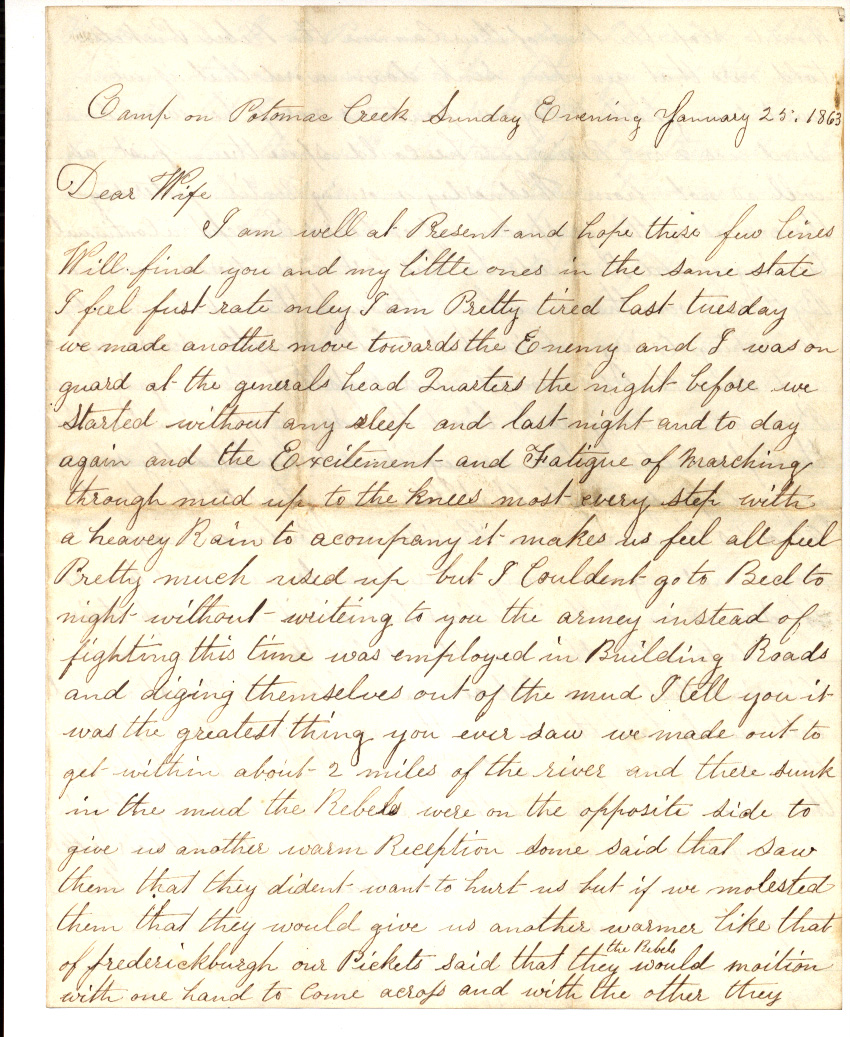 Camp on Potomac Creek Sunday Evening January 25. 1863
Dear Wife
I am well at Present and hope these few lines
Will find you and my little ones in the same state
I feel fust rate onley I am Pretty tired last tuesday
we made another move towards the Enemy and I was on
guard at the generals head Quarters the night before we
started without any sleep and last night and to day
again and the Excitement and Fatigue of marching
through mud up to the knees most every step with
a heavey Rain to acompany it makes us feel all feel
Pretty much used up but I Couldent go to Bed to
night without writeing to you the armey instead of
fighting this time was employed in Building Roads
and diging themselves out of the mud I tell you it
was the greatest thing you ever saw we made out to
get within about 2 miles of the river and there sunk
in the mud the Rebels were on the opposite side to
give us another warm Reception some said that saw
them that they dident want to hurt us but if we molested
them that they would give us another warmer like that
the Rebels
of frederickburgh our Pickets said that they would moition
with one hand to Come across and with the other they